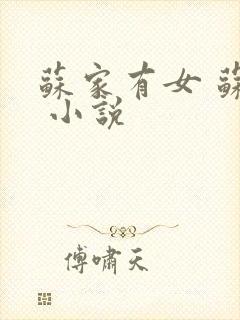 蘇家有女 蘇
小說
傅嘯天